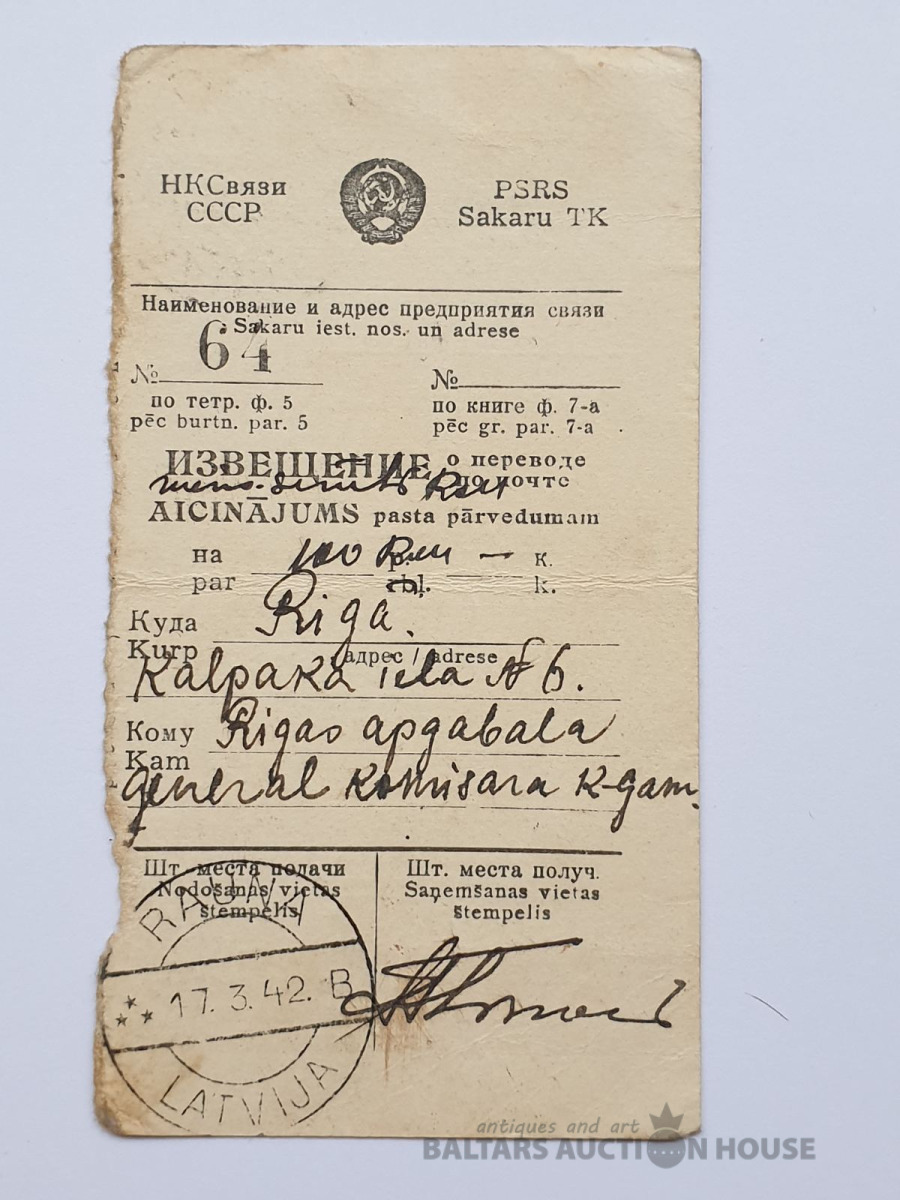 НКСвязи
СССР
PSRS
Sakaru TK
Наименование и адрес предприятия связи
Sakaru iest. nos. un adrese
64
№
по тетр. ф. 5
pēc burtn. par. 5
№
по книге ф. 7-а
pēc gr. par. 7-a
ИЗВЕЩЕНИЕ о переводе
по почте
viens simts Rm
AICINĀJUMS pasta pārvedumam
на 100 Rm — к.
par rbl. k.
Куда Rīgā.
Kurp адрес / adrese
Kalpaka iela № 6.
Кому Rīgas apgabala
Kam
general komisara k-gam.
Шт. места подачи
Nodošanas vietas
štempelis
Шт. места получ.
Saņemšanas vietas
štempelis
RAUNA
17.3.42. B
LATVIJA
antiques and art
BALTARS AUCTION HOUSE